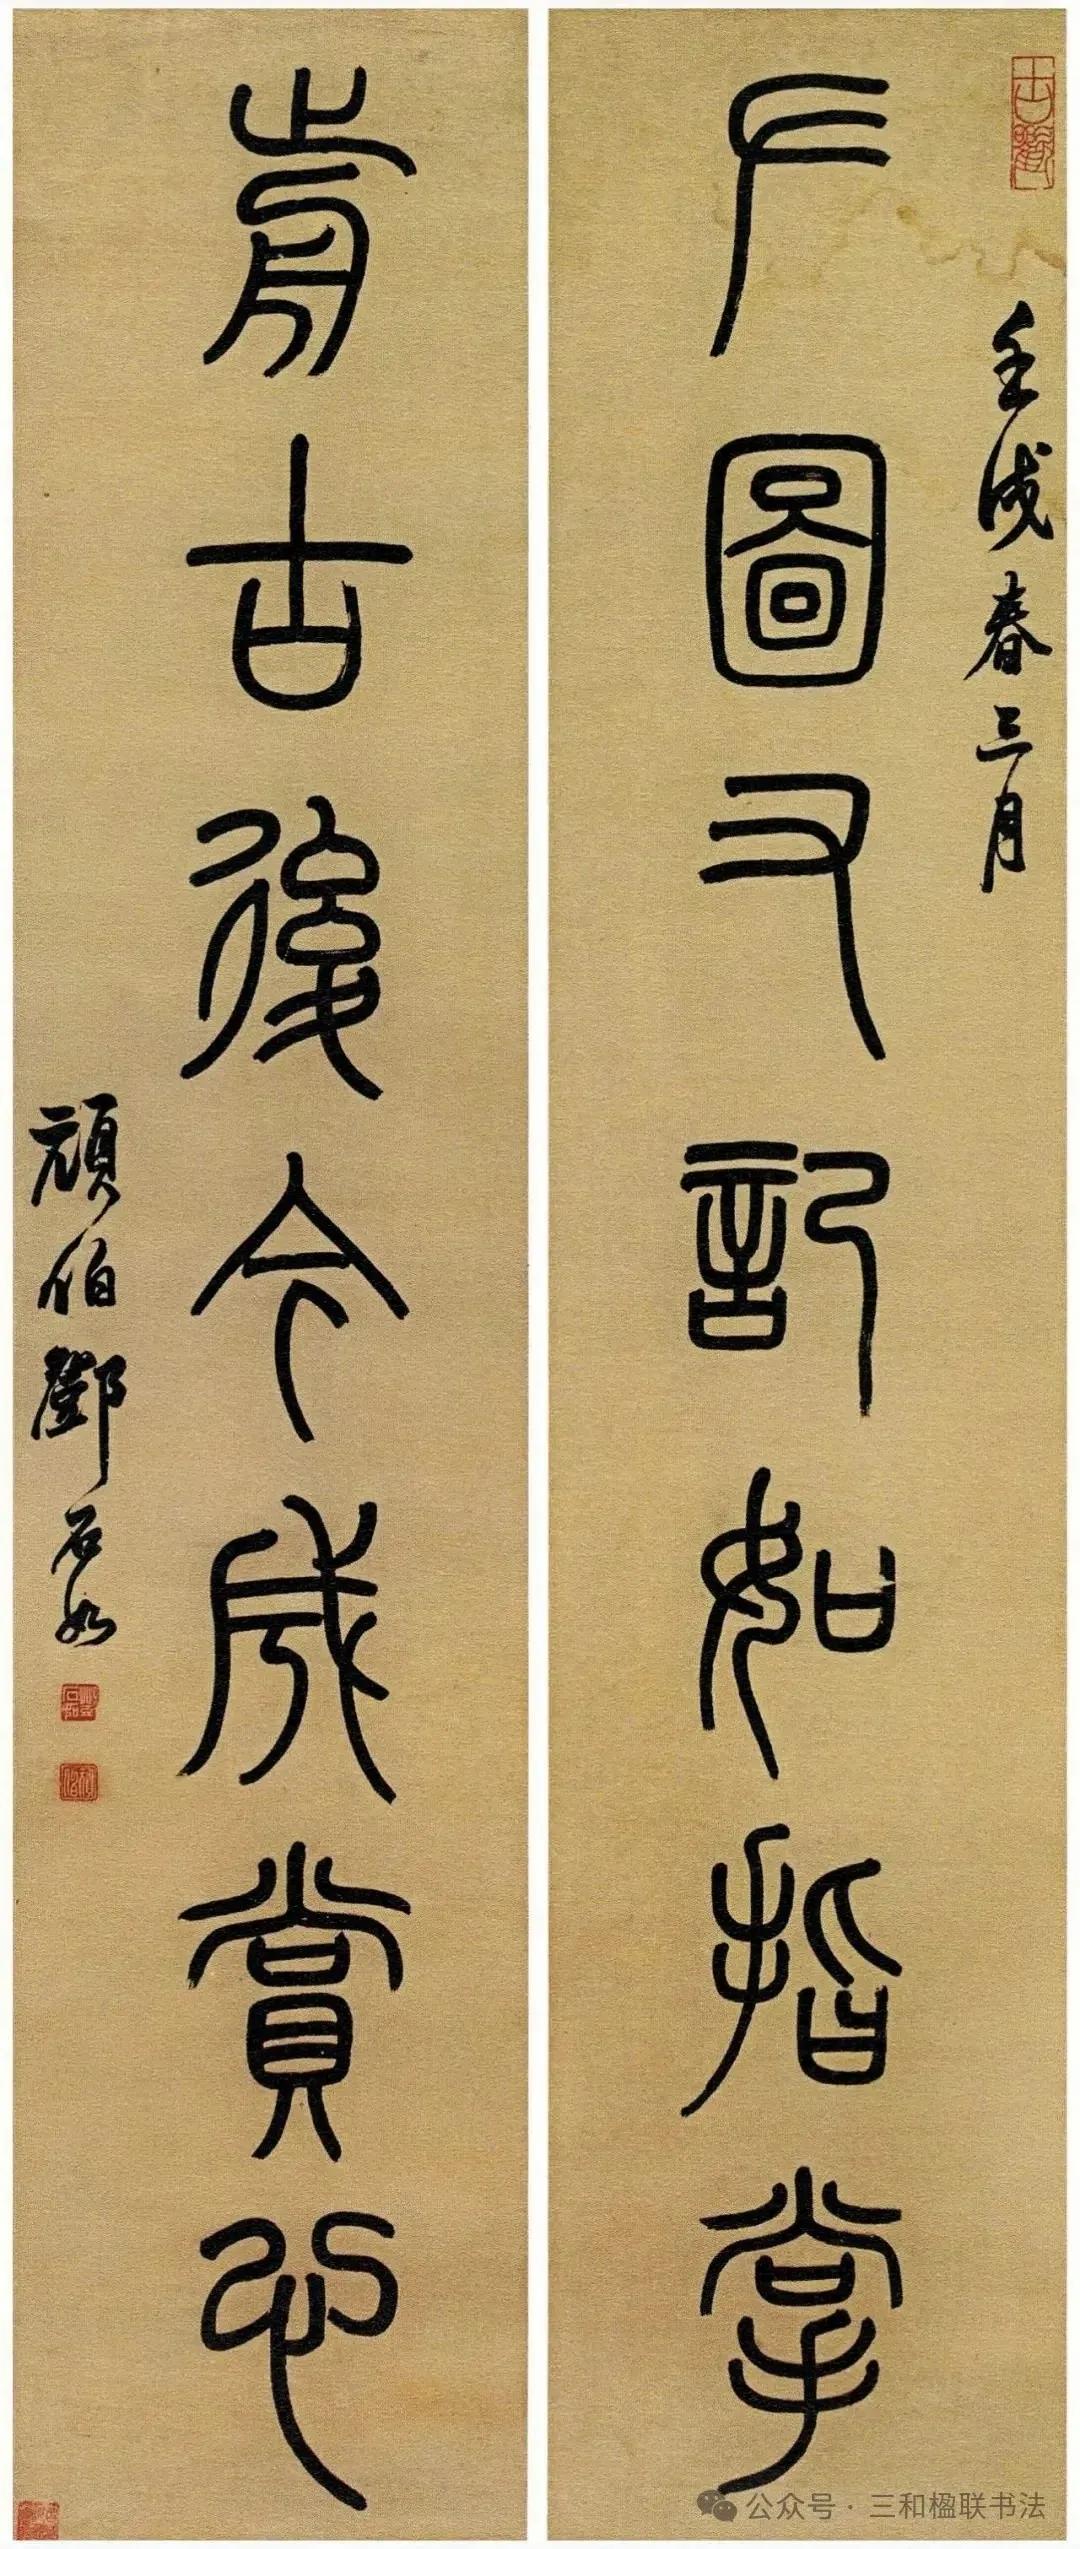 古歡
壬戌春三月
𠂇圖又記如指掌
歬古後今成賞心
頑伯鄧石如
公众号·三和楹联书法